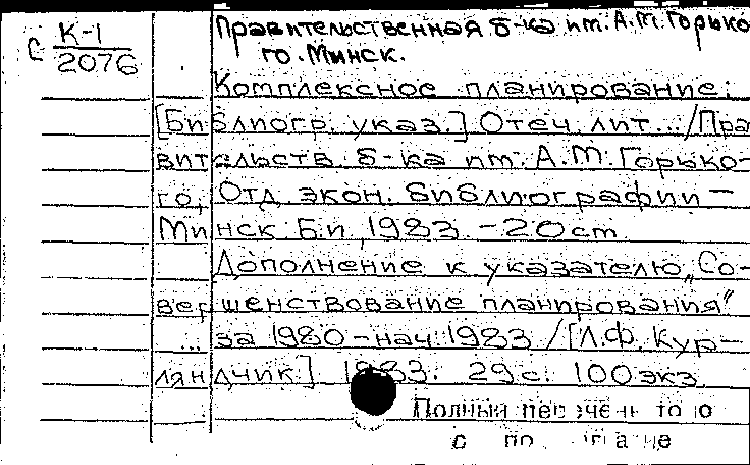 С К-1
2076
Правительственная б-ка им. А.М. Горько
го. Минск.
Комплексное планирование:
[Библиогр. указ.] Отеч. лит... /Пра
вительств. б-ка им. А.М. Горько-
го, Отд. экон. библиографии –
Минск Б.и, 1983. – 20 cm
Дополнение к указателю „Со-
вершенствование планирования"
... за 1980 – нач. 1983 / [Л.Ф. Кур-
ляндчик] 1983. 29 с. 100 экз.
Полный
с